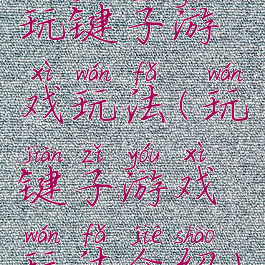 玩键子游
xì wán fǎ wán
戏玩法(玩
jiàn zǐ yóu xì
键子游戏
wán fǎ jiè shào
玩法介绍)